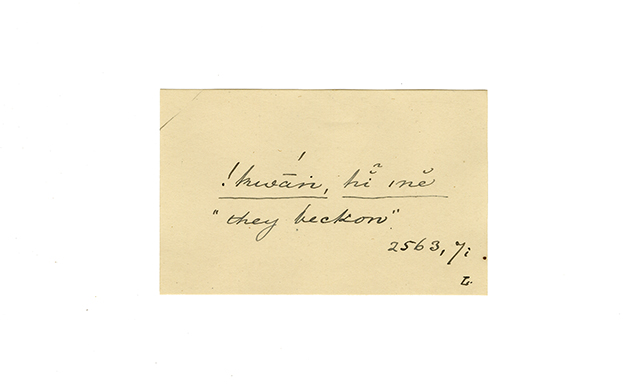 !kwā́n, hĭ̃ ıně
"they beckon"
2563, 7i.
L.